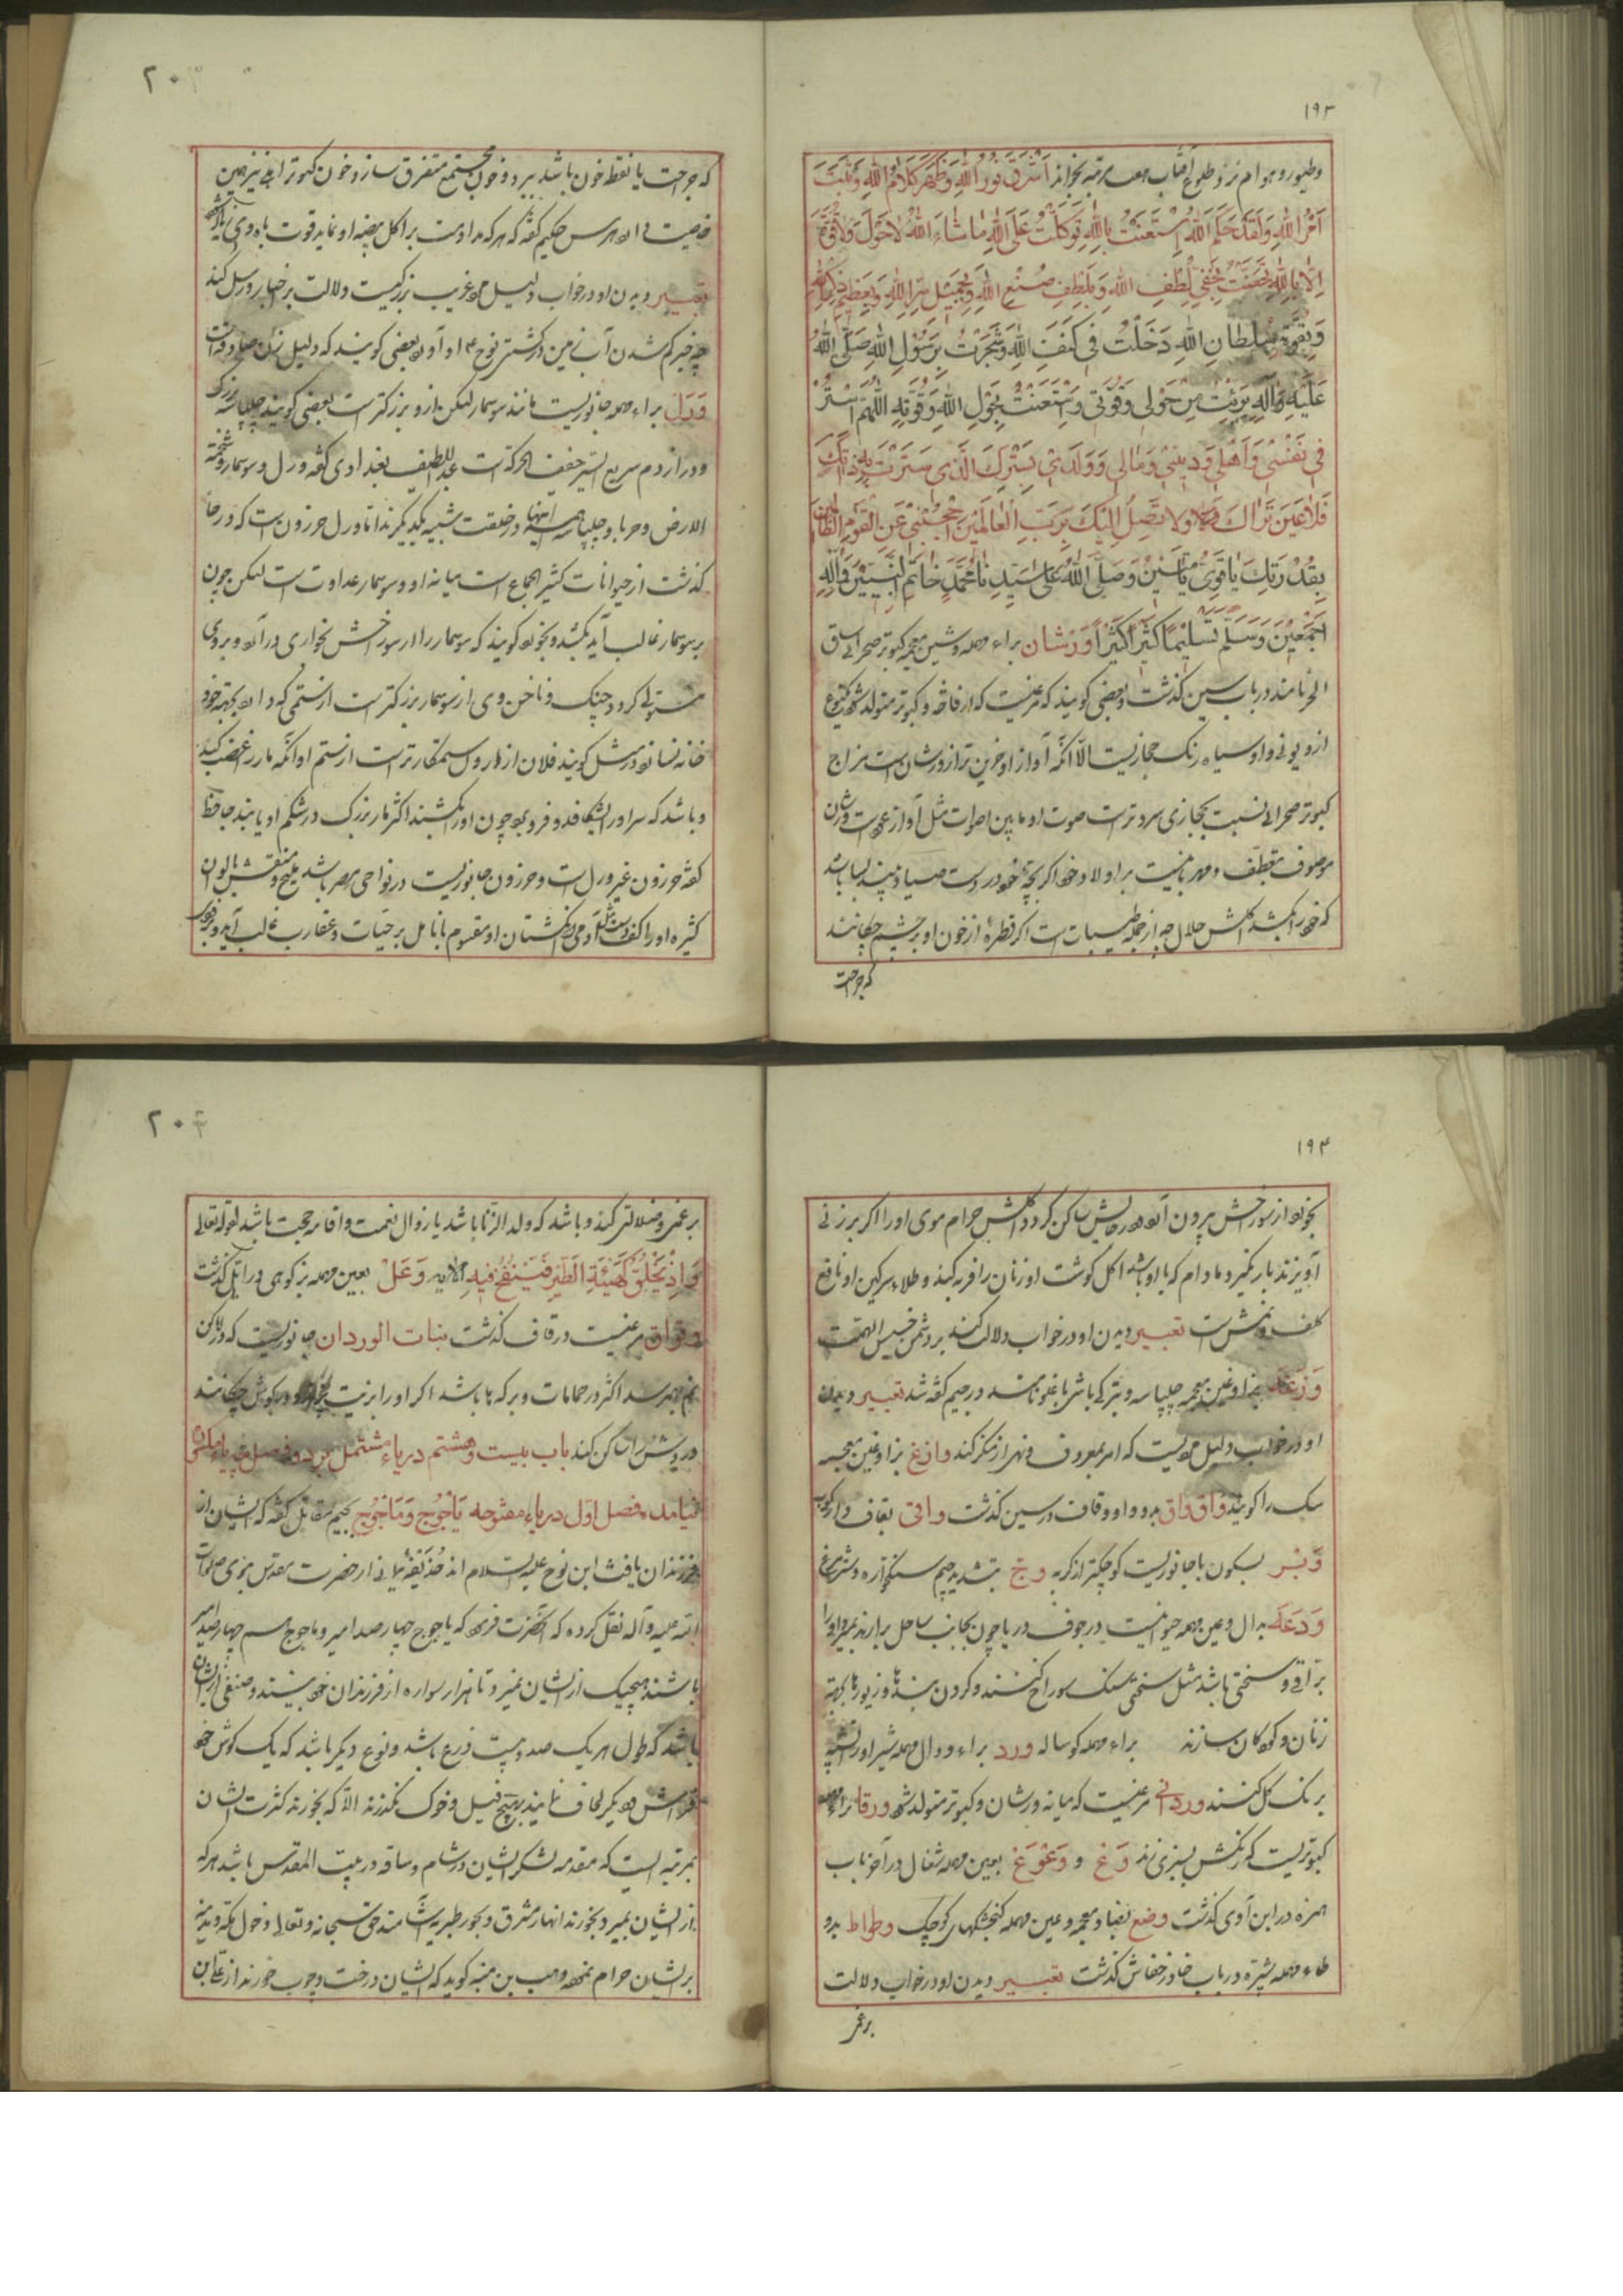 ۱۹۳
وطیور و هوام نزد طلوع آفتاب هفت مرتبه بخواند اَشْرَقَ نُورُ اللهِ وَظَهَرَ كَلَامُ اللهِ وَثَبَتَ
اَمْرُ اللهِ وَنَفَذَ حُكْمُ اللهِ اِسْتَعَنْتُ بِاللهِ تَوَكَّلْتُ عَلَى اللهِ مَا شَاءَ اللهُ لَا حَوْلَ وَلَا قُوَّةَ
اِلَّا بِاللهِ تَحَصَّنْتُ بِخَفِيِّ لُطْفِ اللهِ وَبِلَطِيفِ صُنْعِ اللهِ وَبِجَمِيلِ سِتْرِ اللهِ وَبِعَظِيمِ ذِكْرِ اللهِ
وَبِقُوَّةِ سُلْطَانِ اللهِ دَخَلْتُ فِي كَنَفِ اللهِ وَاسْتَجَرْتُ بِرَسُولِ اللهِ صَلَّى اللهُ
عَلَيْهِ وَآلِهِ بَرِئْتُ مِنْ حَوْلِي وَقُوَّتِي وَاسْتَعَنْتُ بِحَوْلِ اللهِ وَقُوَّتِهِ اَللّهُمَّ اسْتُرْنِي
فِي نَفْسِي وَاَهْلِي وَدِينِي وَمَالِي وَوَلَدِي بِسِتْرِكَ الَّذِي سَتَرْتَ بِهِ ذَاتَكَ
فَلَا عَيْنٌ تَرَاكَ وَلَا يَدٌ تَصِلُ اِلَيْكَ يَا رَبَّ الْعَالَمِينَ اُحْجُبْنِي عَنِ الْقَوْمِ الظَّالِمِينَ
بِقُدْرَتِكَ يَا قَوِيُّ يَا مَتِينُ وَصَلَّى اللهُ عَلَى سَيِّدِنَا مُحَمَّدٍ خَاتَمِ النَّبِيِّينَ وَآلِهِ
اَجْمَعِينَ وَسَلَّمَ تَسْلِيمًا كَثِيرًا كَثِيرًا وَرَشان براء مهمله وشین معجمه کبوتر صحرائی ساق
الحر نامند در باب سین گذشت وبعضی گویند که مرغیست که از فاخته وکبوتر متولد شود نوع
ازو نوبی و او سیاه رنگ حجازیست الّا آنکه آواز او حزین تر از ورشان است مزاج
کبوتر صحرائی نسبت بحجازی سردترست صوت او مابین اصوات مثل آواز عودست ورشان
موصوف بتعطّف ومهربانیست بر اولاد خود اگر بچهٔ خود در دست صیاد بیند بسا باشد
که خود را بکشد اکلش حلال چه از جمله طیبات است اگر قطرهٔ از خون او بر چشم چکانند
که جراحت
۲۰
که جراحت یا نقطه خون باشد ببرد وخون مجتمع متفرق سازد وخون کبوتر اهلی نیز همین
خاصیت دارد هرمس حکیم گفته که هر که مداومت بر اکل بیضه او نماید قوت باه وی زیاده شود
تعبیر دیدن او در خواب دلیل مرد غریب بزرگیست و دلالت بر اخبار و رسل کند
چه خبر کم شدن آب زمین در کشتی نوح ع او آورد بعضی گویند که دلیل زن صاحب صداقت
وَرَل براء مهمله جانوریست مانند سوسمار لیکن ازو بزرگترست بعضی گویند چلپاسه بزرگ
ودراز دم سریع السیر خفیف الحرکت است عبد اللطیف بغدادی گفته ورل وسوسمار وشحمة
الارض وحربا وچلپاسه همه اینها در خلقت شبیه یکدیگرند امّا ورل حرزون است که در حا
گذشت از حیوانات کثیر الجماع است میانه او وسوسمار عداوت است لیکن چون
بر سوسمار غالب آید بکشد ونخورد گویند که سوسمار را از سوراخش بخواری در آورد وبروی
مستولی گردد چنگ وناخن وی از سوسمار بزرگترست از ستمی که دارد بجهت خود
خانه نسازد مثل گویند فلان از ورل ستمکارترست از ستم او آنکه مار را غصب کند
وباشد که سر او را بشکافد وفرو برد چون او را بکشند اکثر مار بزرگ در شکم او یابند جاحظ
گفته حرزون غیر ورل است وحرزون جانوریست در نواحی مصر باشد ملیح ومنقش بالوان
کثیره او را کف دست مثل آدمی وانگشتان او مقسوم بانامل بر حیّات وعقارب غالب آید
۱۹۴
بخورد از سوراخش بیرون آورد در جایش ساکن گردد اکلش حرام موی او را اگر بر زنی
آویزند بار نگیرد مادام که با او باشد اکل گوشت او زنان را فربه کند وطلاء سرگین او نافع
کلف ونمش است تعبیر دیدن او در خواب دلالت کند بر دشمن خسیس الهمّت
وَزَغَه بزاء وغین معجمه چلپاسه وبترکی باشد در جیم گفته شد تعبیر دیدن
او در خواب دلیل مردیست که امر بمعروف ونهی از منکر کند وازع بزا وعین معجمه
سک را گویند واق واق بدو واو وقاف در سین گذشت واقی بقاف
وَبْر بسکون با جانوریست کوچکتر از گربه وجّ بتشدید جیم سنگخواره وشترمرغ
وَدَعَه بدال وعین مهمله حیوانیست در جوف دریا چون بجانب ساحل بر آرند بمیرد او را
براقی وسختی باشد مثل سنگ سوراخ کنند وگردن بندها وزیورها بجهت
زنان وکودکان سازند براء مهمله گوساله ورد براء ودال مهمله شیر او را تشبیه
برنگ گل کنند وردانی مرغیست که میانه ورشان وکبوتر متولد شود ورقا براء مهمله
کبوتریست که رنگش بسبزی زند وَعْ و وَعْوَع بعین مهمله شغال در آخر باب
همزه در ابن آوی گذشت وضع بضاد معجمه وعین مهمله گنجشکهای کوچک وطواط بدو
طاء مهمله شبپره در باب خا در خفاش گذشت تعبیر دیدن او در خواب دلالت
بر غمر
۲۰
بر غمر وضلالتی کند وباشد که ولد الزنا باشد یا زوال نعمت واقامه حجت باشد لقوله تعالی
وَاِذْ تَخْلُقُ كَهَيْئَةِ الطَّيْرِ فَتَنْفُخُ فِيهِ الآیه وَعَلْ بعین مهمله بز کوهی در ایّل گذشت
وقواق مرغیست در قاف گذشت بنات الوردان جانوریست که در اماکن
نم بهم رسد اکثر در حمامات وبرکه‌ها باشد اگر او را بزیت در گوش چکانند
درد وی ساکن کند باب بیست وهشتم در یاء مشتمل بر دو فصل
نیامد فصل اوّل در یاء مفتوحه يَأْجُوج وَمَأْجُوج بجیم مقاتل گفته که ایشان از
فرزندان یافث ابن نوح علیه السلام اند حُذَیفه یمانی از حضرت مقدس نبوی صلوات
الله علیه وآله نقل کرده که آنحضرت فرمود که یاجوج چهارصد امیر وماجوج هم چهارصد امیر
باشند هیچیک از ایشان نمیرد تا هزار سواره از فرزندان خود ببیند وصنفی از ایشان
باشد که طول هر یک صد وبیست ذرع باشد ونوع دیگر باشد که یک گوش خود
فراش ودیگر لحاف نمایند بهیچ فیل وخوک نگذرند الّا که بخورند کثرت ایشان
بمرتبه ایست که مقدمه لشکر ایشان در شام وساقه در بیت المقدس باشد هر که
از ایشان بمیرد بخورند انهار مشرق وبحور طبریه بیاشامند حق سبحانه وتعالی دخول مکه ومدینه
بر ایشان حرام نموده وهب بن منبه گوید که ایشان درخت وچوب خورند